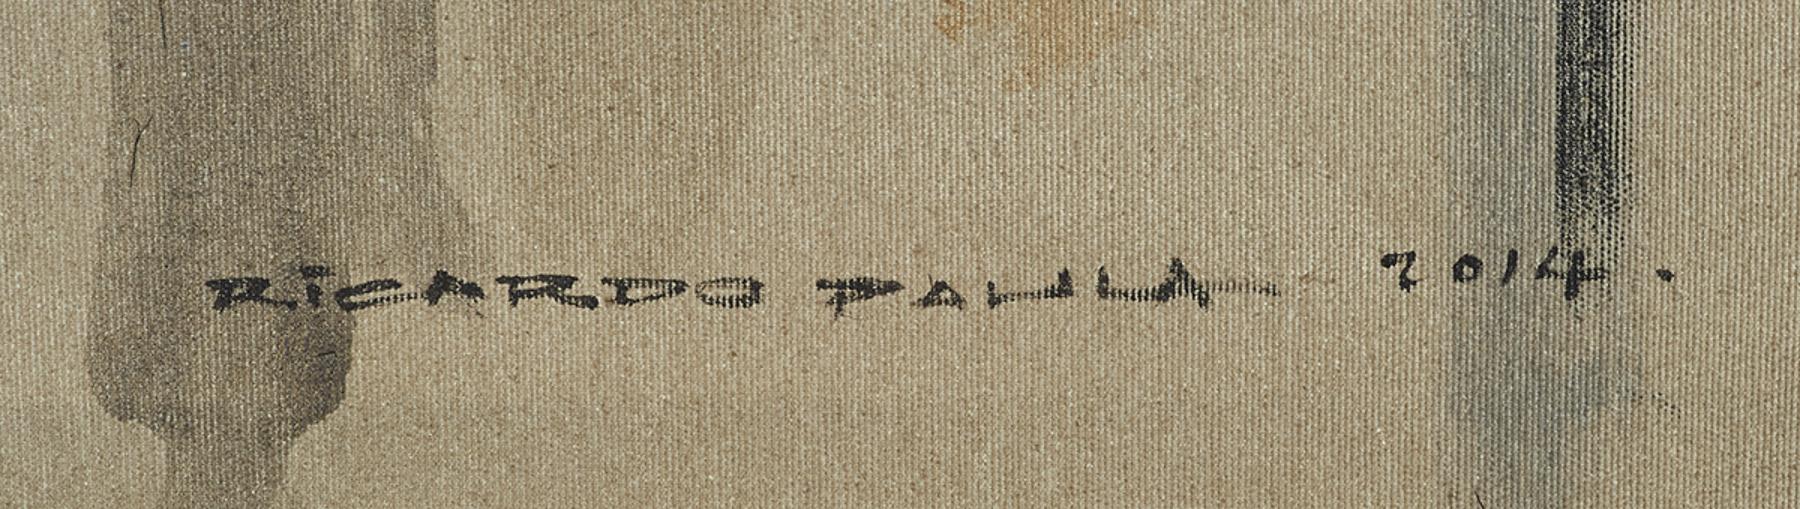 RiCARDO PAULA 2014.